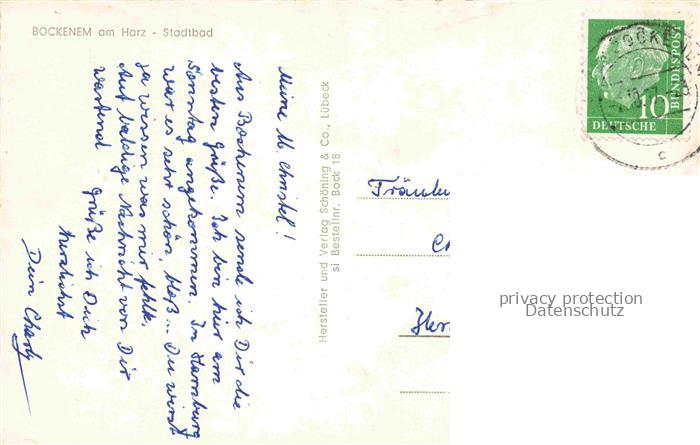 BOCKENEM am Harz - Stadtbad
Meine lb. Christel!
Aus Bockenem sende ich Dir die
besten Grüße. Ich bin hier am
Sonntag angekommen. In Hamburg
war es sehr schön, bloß... Du wirst
ja wissen was mir fehlt.
Auf baldige Nachricht von Dir
wartend grüße ich Dich
herzlichst
Dein Charly
Hersteller und Verlag Schöning & Co., Lübeck
si Bestellnr. Bock 18
10
DEUTSCHE
BUNDESPOST
c
privacy protection
Datenschutz